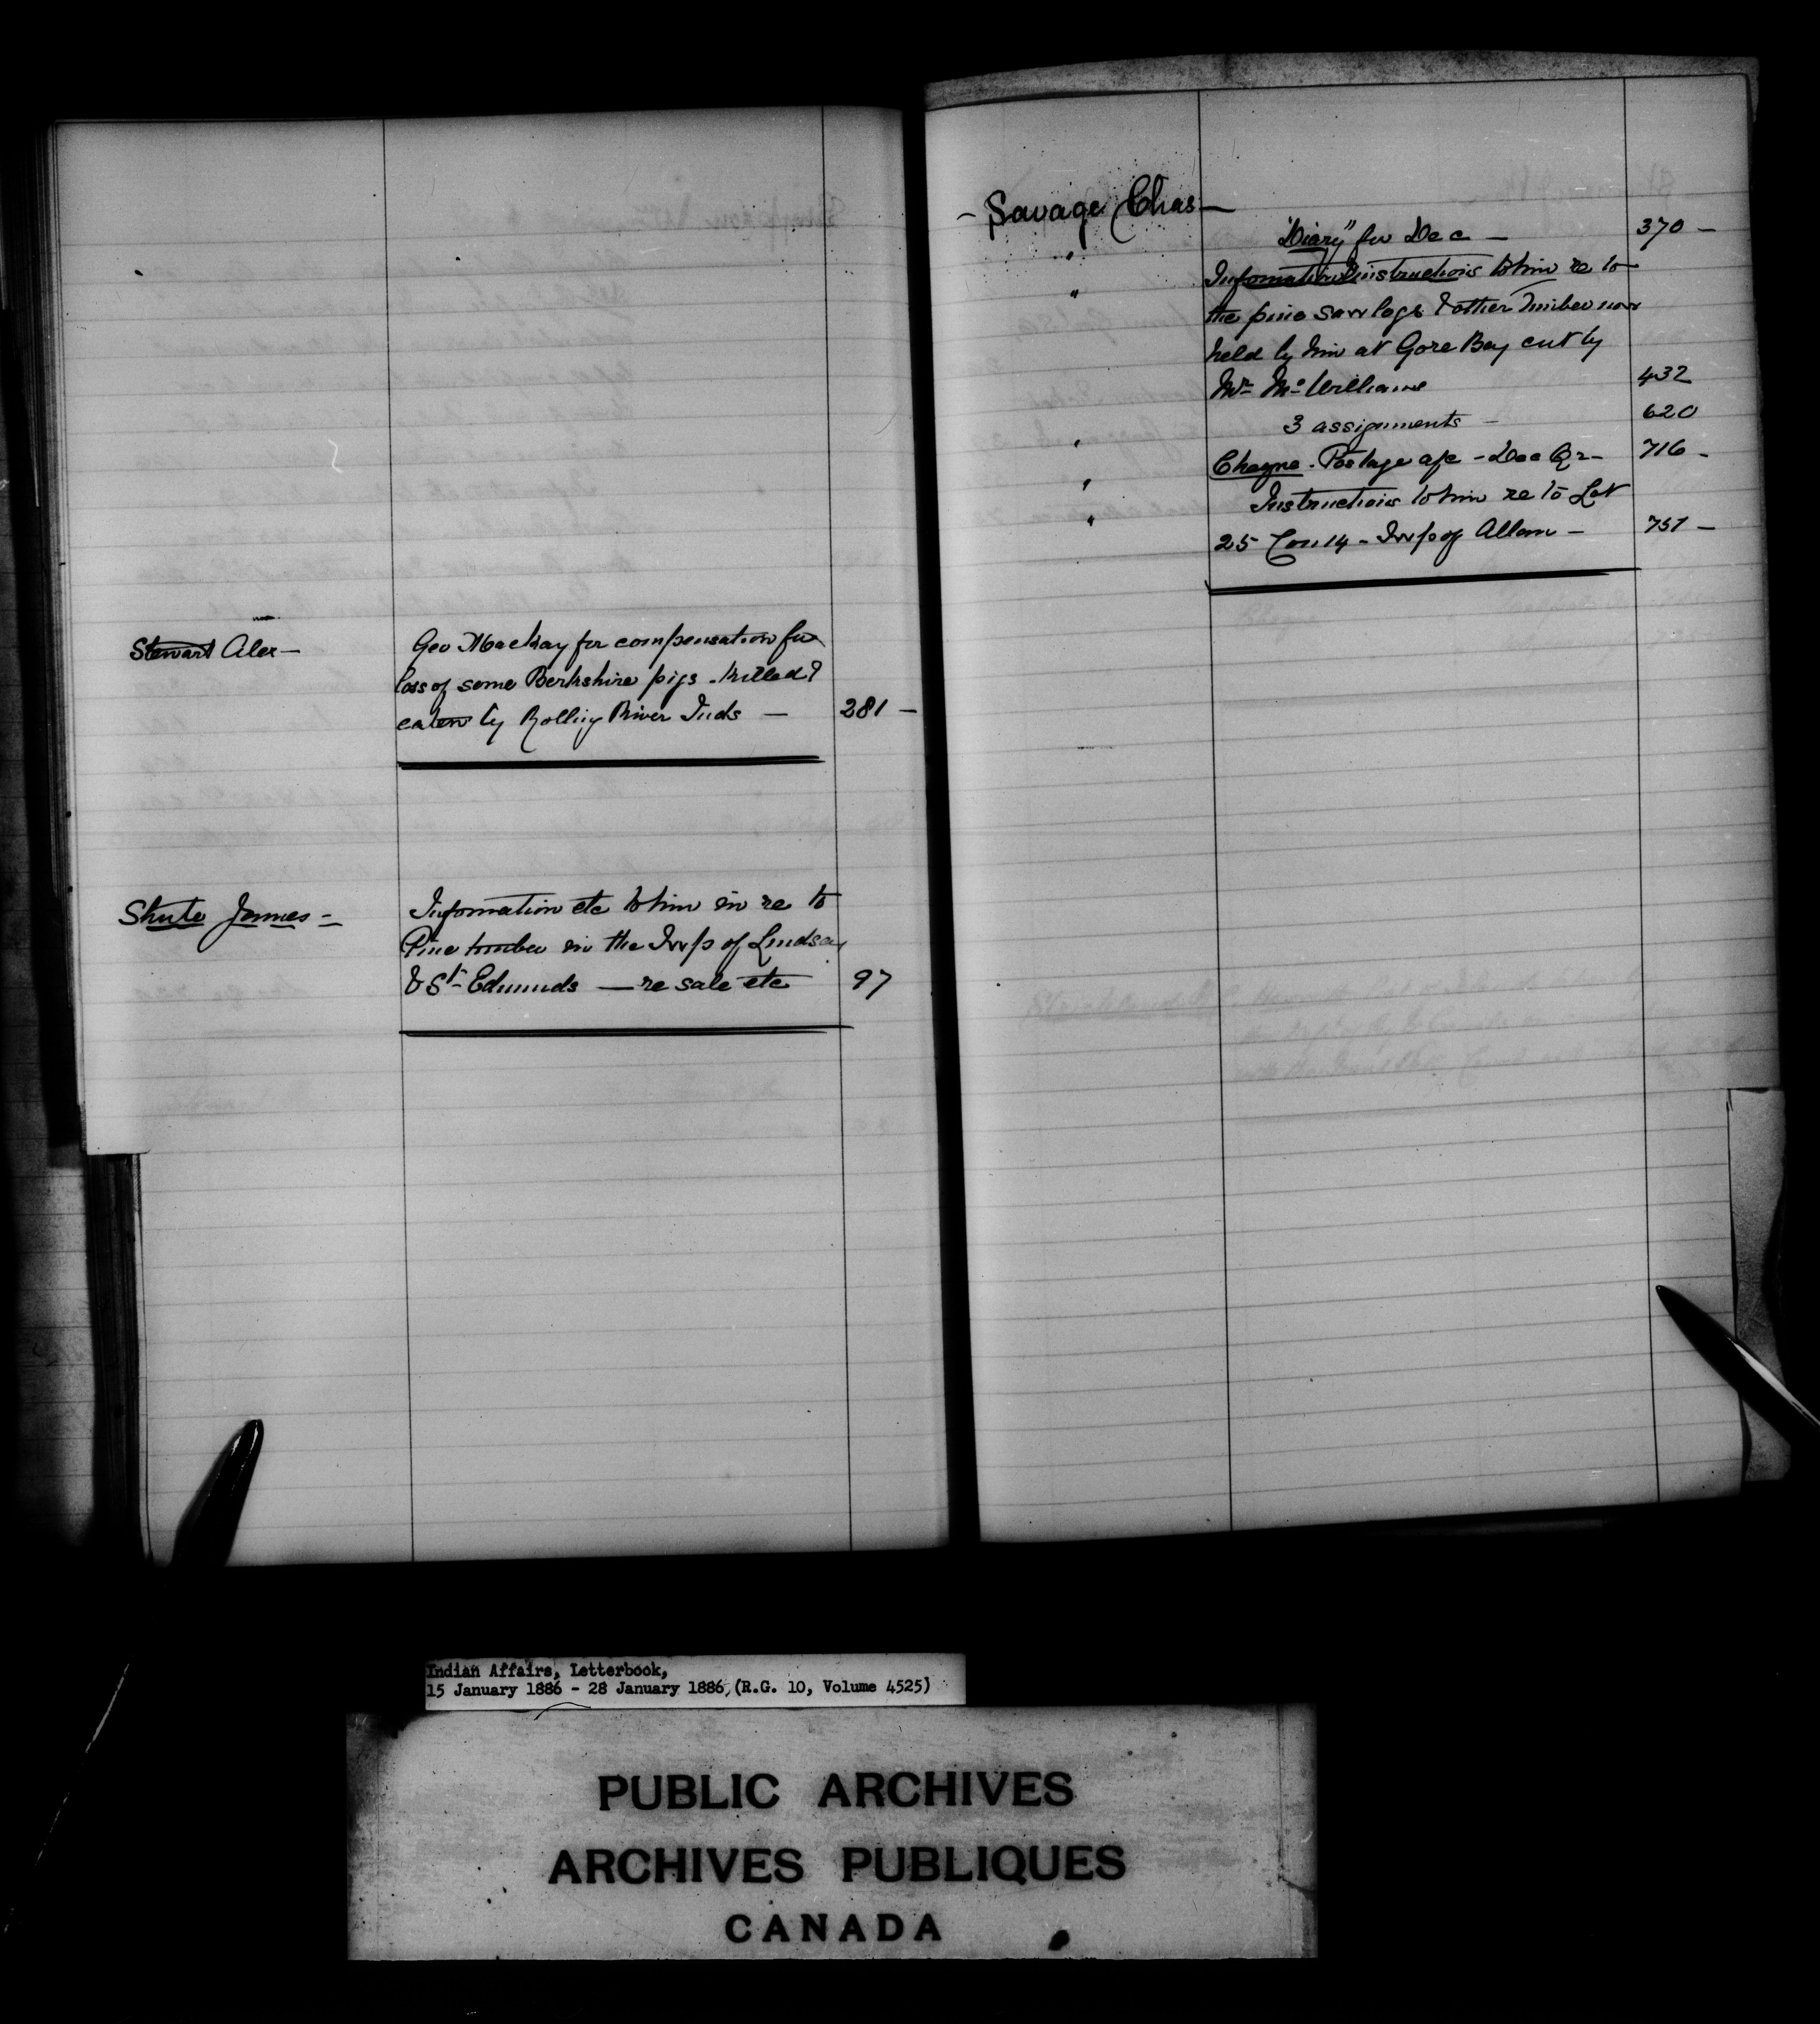 Stewart Alex —
Geo Mackay for compensation for
loss of some Berkshire pigs - killed &
eaten by Rolling River Inds — 281 —
Shute James —
Information etc to him in re to
Pine timber in the Twp of Lindsay
& St. Edmunds — re sale etc 97
- Savage Chas —
"Diary" for Dec — 370 —
" Information & instructions to him re to
the pine saw logs & other timber now
held by him at Gore Bay cut by
Mr. Mc Williams 432
" 3 assignments — 620
" Cheque. Postage a/c - Dec Qr - 716 -
" Instructions to him re to Lot
25 Con 14 - Twp of Allan — 757 —
Indian Affairs, Letterbook,
15 January 1886 - 28 January 1886, (R.G. 10, Volume 4525)
PUBLIC ARCHIVES
ARCHIVES PUBLIQUES
CANADA